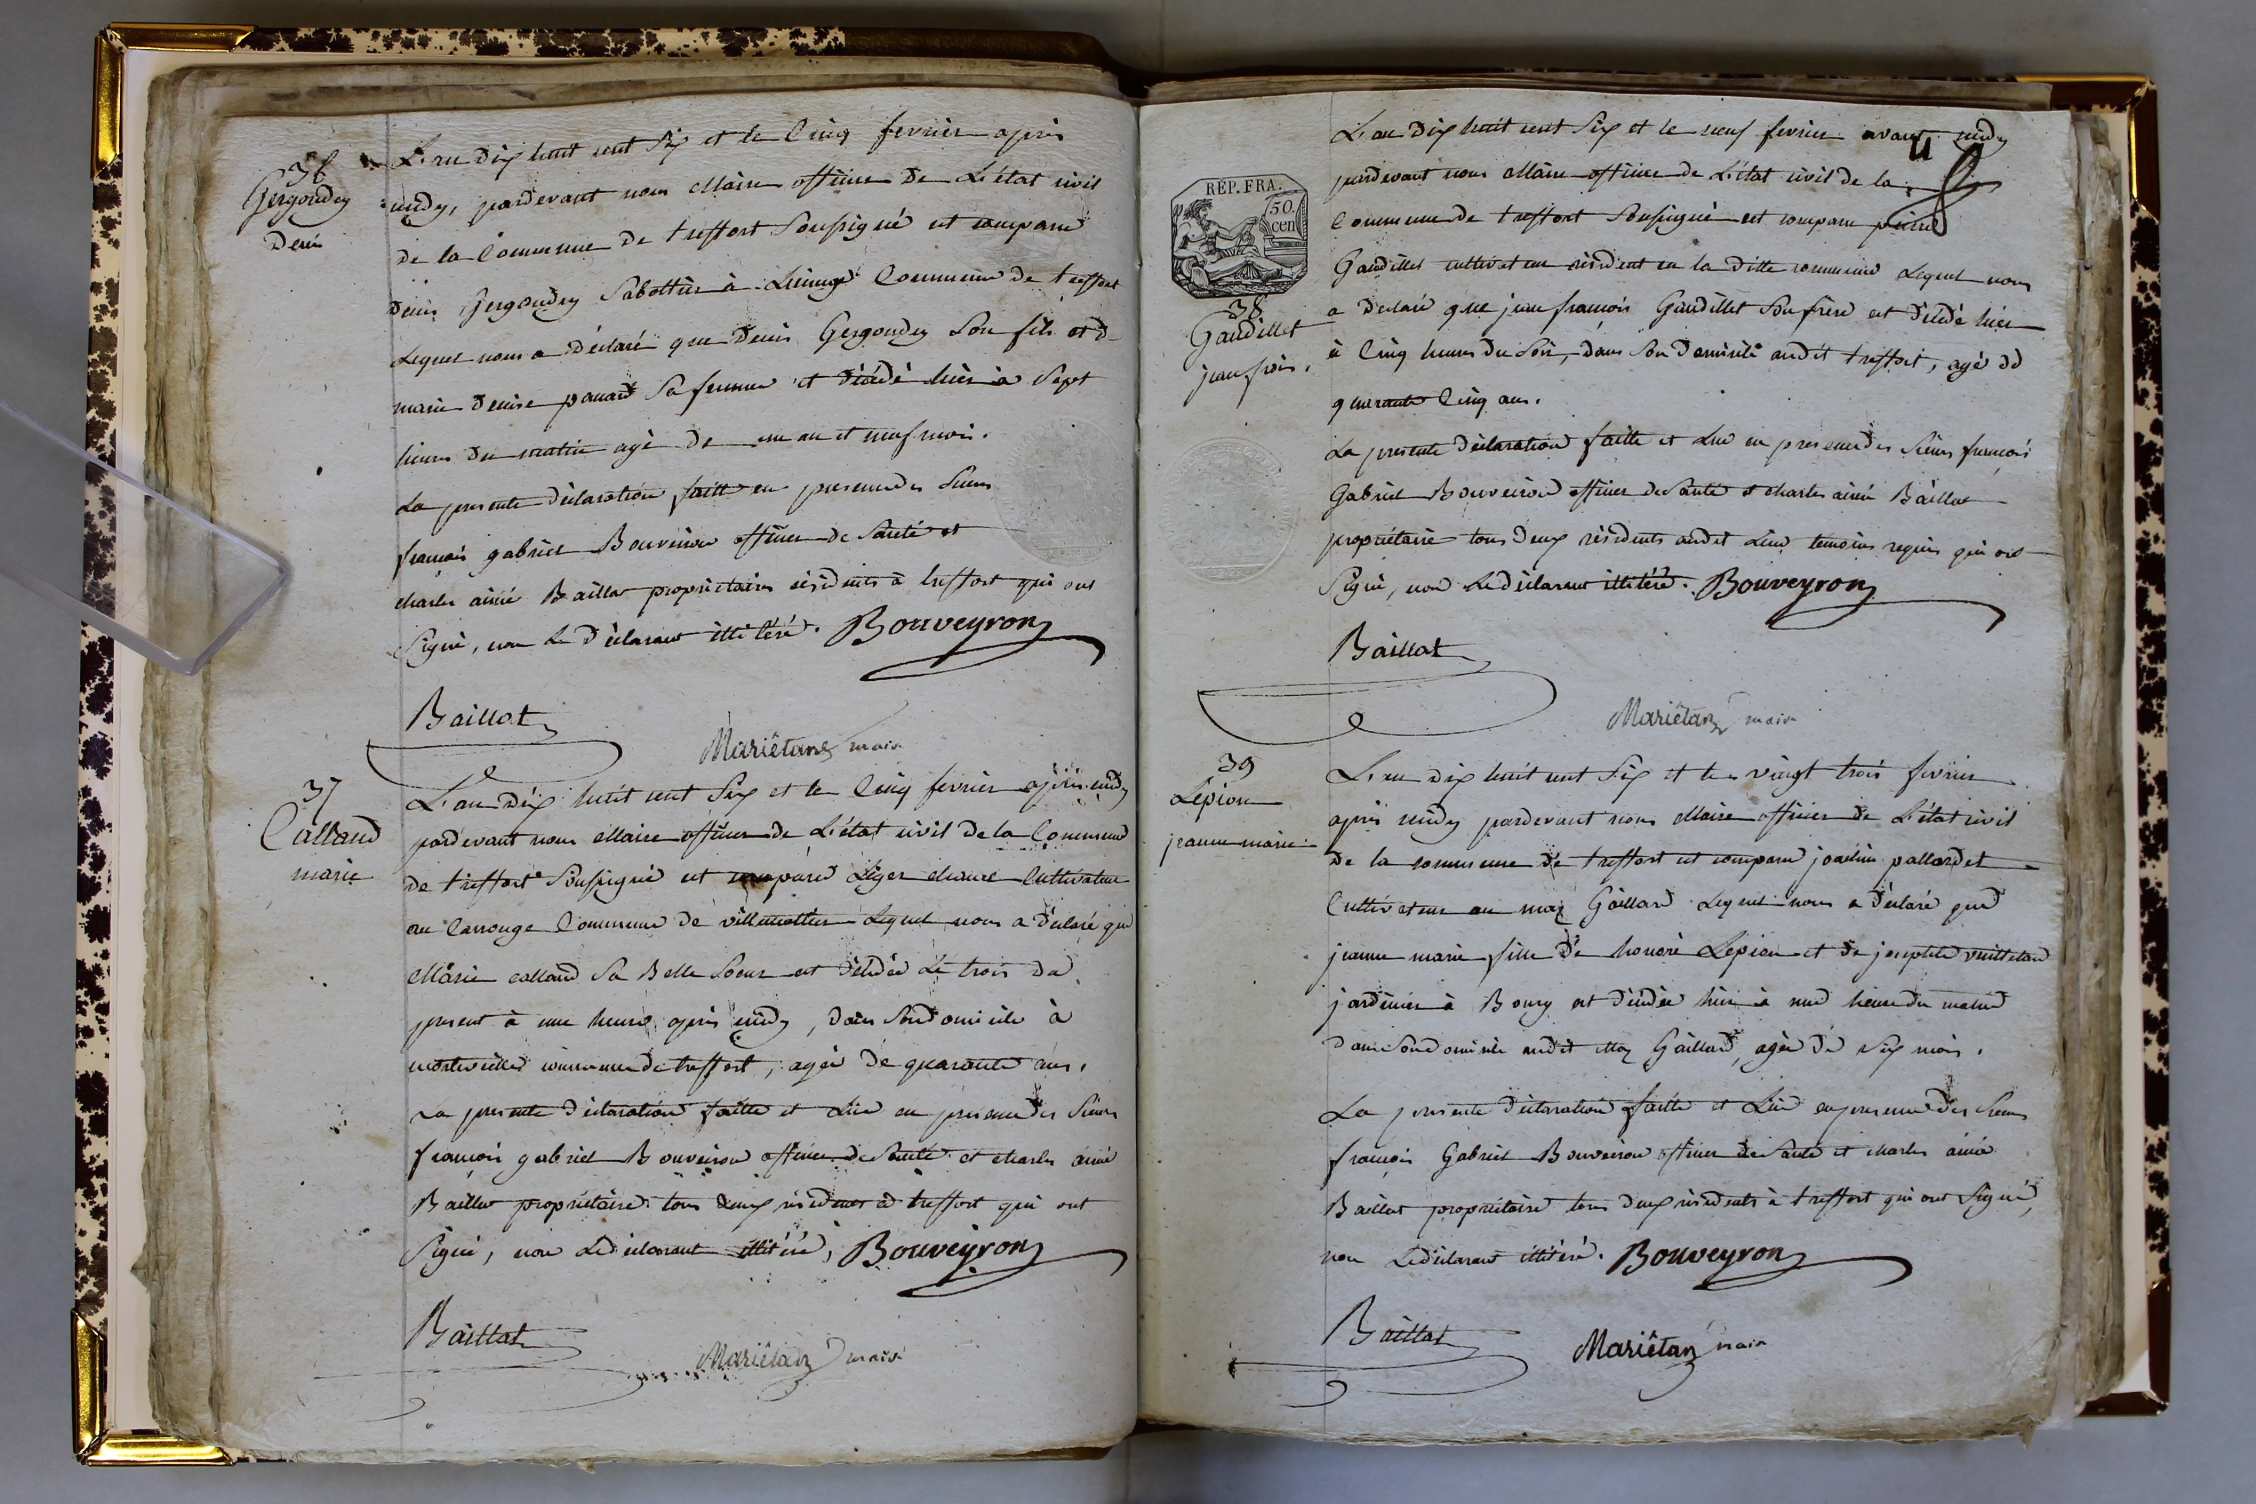 36
Gergondey
Denis
L'an dix huit cent Six et le Cinq fevrier après
midy, pardevant nous Maire officier de L'état civil
de la Commune de treffort Soussigné est comparu
Denis Gergondey Sabottier à Commune de treffort
Lequel nous a déclaré que Denis Gergondey Son fils et de
marie Denise panard Sa femme est décédé hièr à Sept
heures du matin agé de un an et neuf mois.
La presente déclaration faitte en presence des Sieurs
françois gabriel Bouveiron officier de Santé et
charles aimé Baillat propriétaires résidents à treffort qui ont
Signé, non Le déclarant illitéré. Bouveyron
Baillat
Mariêtan maire
37
Calland
marie
L'an Dix huit cent Six et le Cinq fevrier après midy
pardevant nous Maire officier de L'état civil de la Commune
de treffort Soussigné est comparu Léger Cultivateur
au Carrouge Commune de villemottier Lequel nous a déclaré que
Marie calland Sa Belle Soeur est décédée Le trois du
present à une heure après midy, dans Son domicile à
montevilles commune de treffort, agée de quarante ans.
La presente déclaration faitte et Lue en presence des Sieurs
françois gabriel Bouveiron officier de Santé et charles aimé
Baillat propriétaire tous deux résidents à treffort qui ont
Signé, non Le déclarant illitéré, Bouveyron
Baillat
Mariêtan maire
RÉP. FRA.
50.
cen
38
Gaudillet
jean frois.
L'an Dix huit cent Six et le neuf fevrier avant midy
pardevant nous Maire officier de L'état civil de la
Commune de treffort Soussigné est comparu pierre
Gaudillet cultivateur résident en la ditte commune Lequel nous
a declaré que jean françois Gaudillet Son frère est décédé hier
à Cinq heures du Soir, dans Son domicile audit treffort, agé de
quarante Cinq ans.
La presente déclaration faitte et Lue en presence des Sieurs françois
Gabriel Bouveiron officier de Santé et charles aimé Baillat
propriétaire tous deux résidents audit Lieu temoins requis qui ont
Signé, non Le déclarant illitéré. Bouveyron
Baillat
Mariêtan maire
39
Lépion
jeanne marie
L'an dix huit cent Six et le vingt trois fevrier
après midy pardevant nous Maire officier de L'état civil
de la commune de treffort est comparu joachim pallardet
Cultivateur au maz Gaillard Lequel nous a déclaré que
jeanne marie fille de honoré Lépion et de josephte
jardinier à Bourg est décédée hier à une heure du matin
dans Son domicile audit Maz Gaillard, agée de Six mois.
La presente déclaration faitte et Lue en presence des Sieurs
françois Gabriel Bouveiron officier de Santé et charles aimé
Baillat propriétaire tous deux résidents à treffort qui ont Signé,
non Le déclarant illitéré. Bouveyron
Baillat
Mariêtan maire